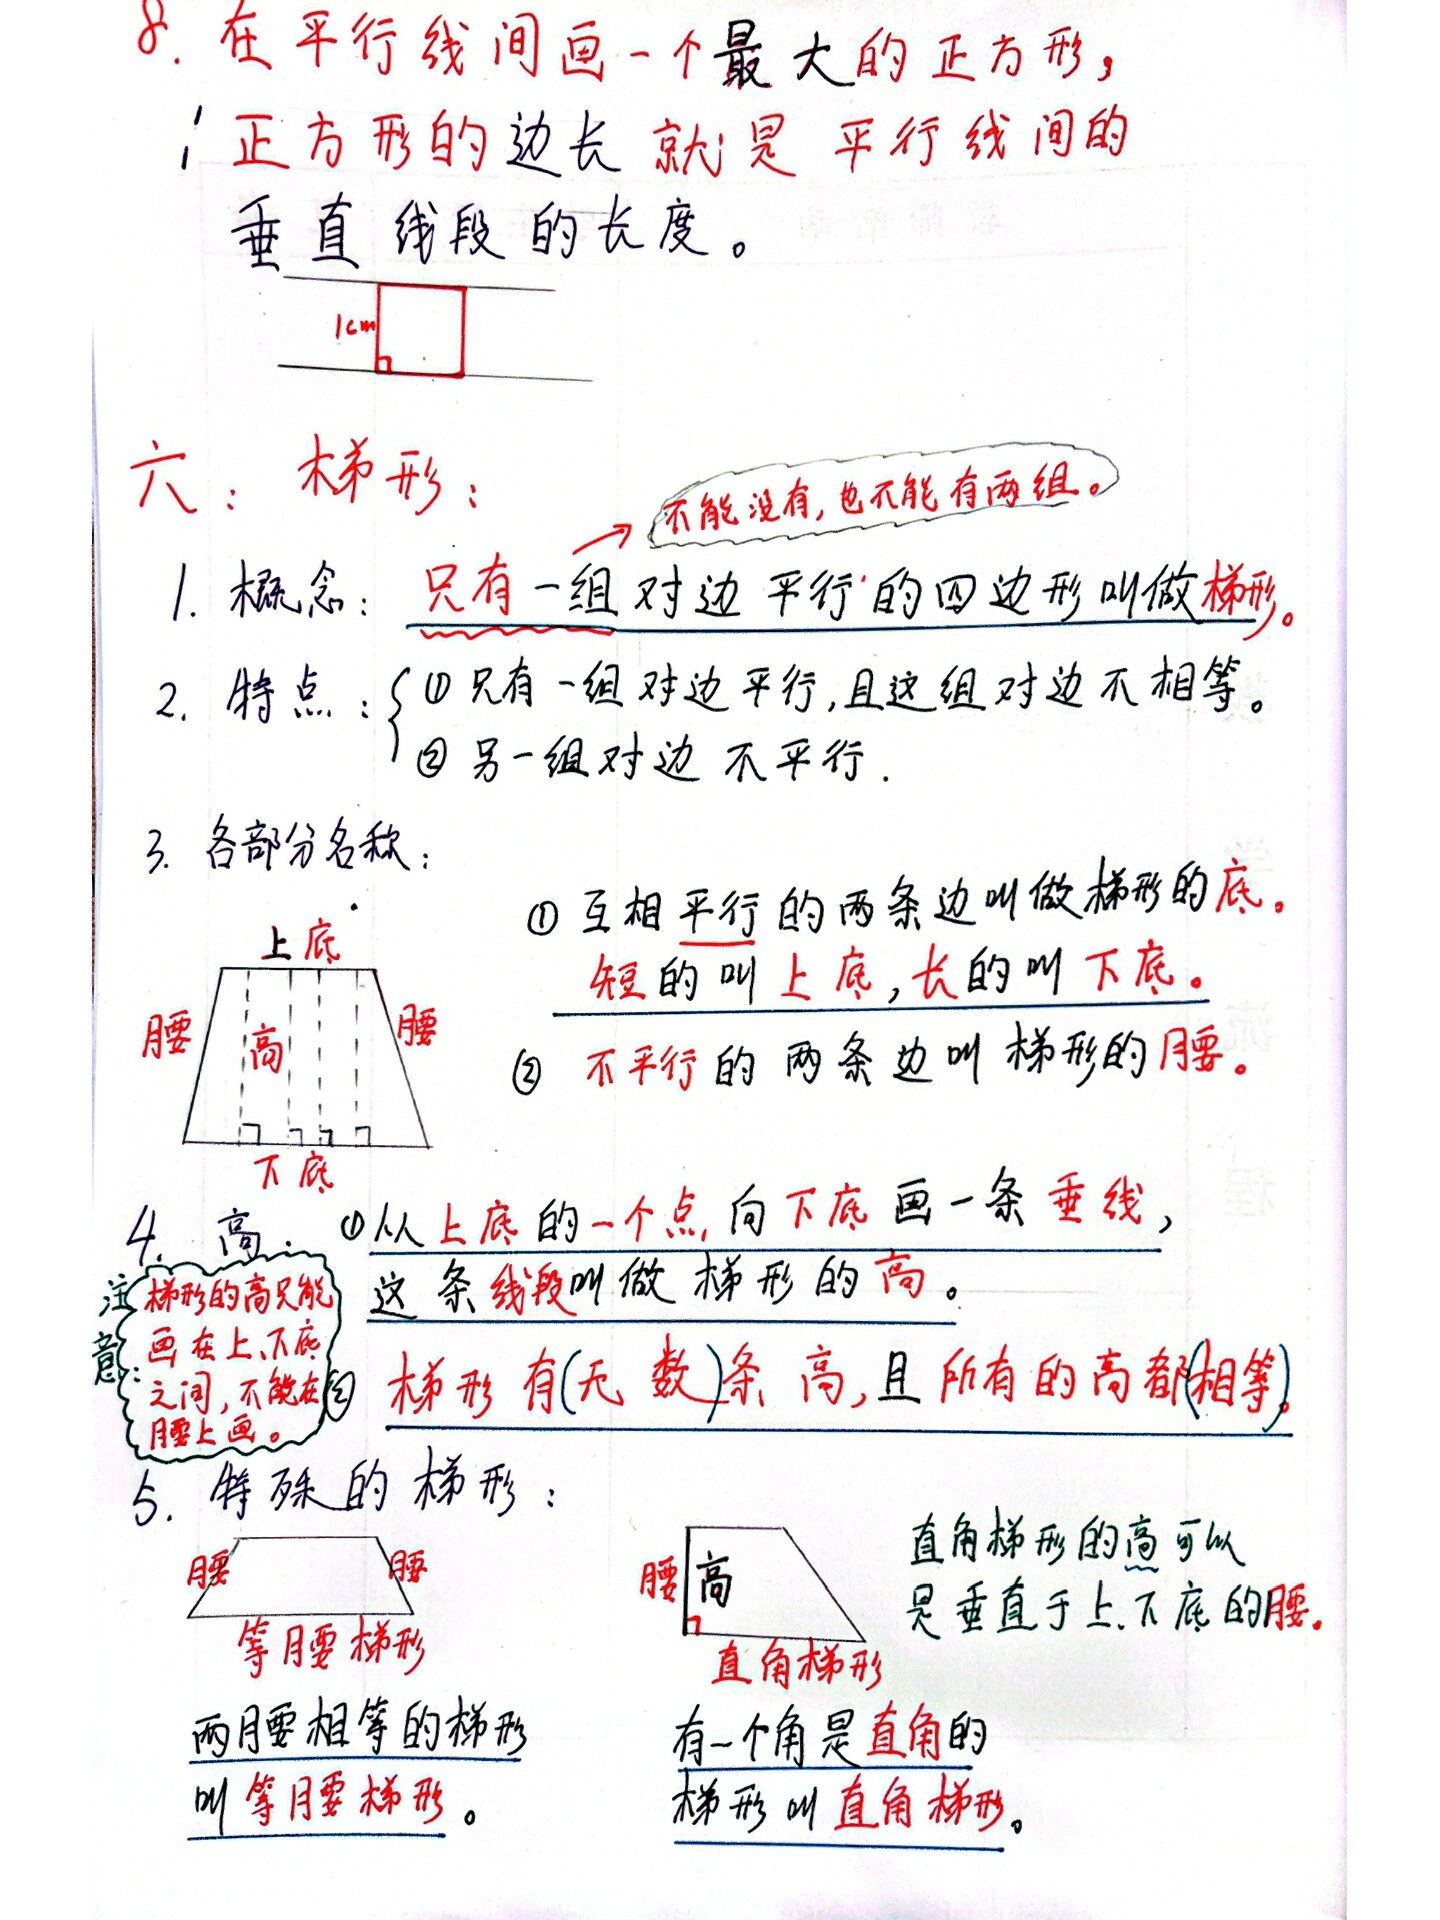 8. 在平行线间画一个最大的正方形，
正方形的边长就是平行线间的
垂直线段的长度。
1cm
六：梯形：
不能没有，也不能有两组。
1. 概念：只有一组对边平行的四边形叫做梯形。
2. 特点：①只有一组对边平行，且这组对边不相等。
②另一组对边不平行.
3. 各部分名称：
上底
腰 高 腰
下底
①互相平行的两条边叫做梯形的底。
短的叫上底，长的叫下底。
②不平行的两条边叫梯形的腰。
4. 高：①从上底的一个点向下底画一条垂线，
这条线段叫做梯形的高。
注意：
梯形的高只能
画在上、下底
之间，不能在
腰上画。
②梯形有(无数)条高，且所有的高都(相等)。
5. 特殊的梯形：
腰 腰
等腰梯形
两腰相等的梯形
叫等腰梯形。
腰 高
直角梯形
直角梯形的高可以
是垂直于上、下底的腰。
有一个角是直角的
梯形叫直角梯形。